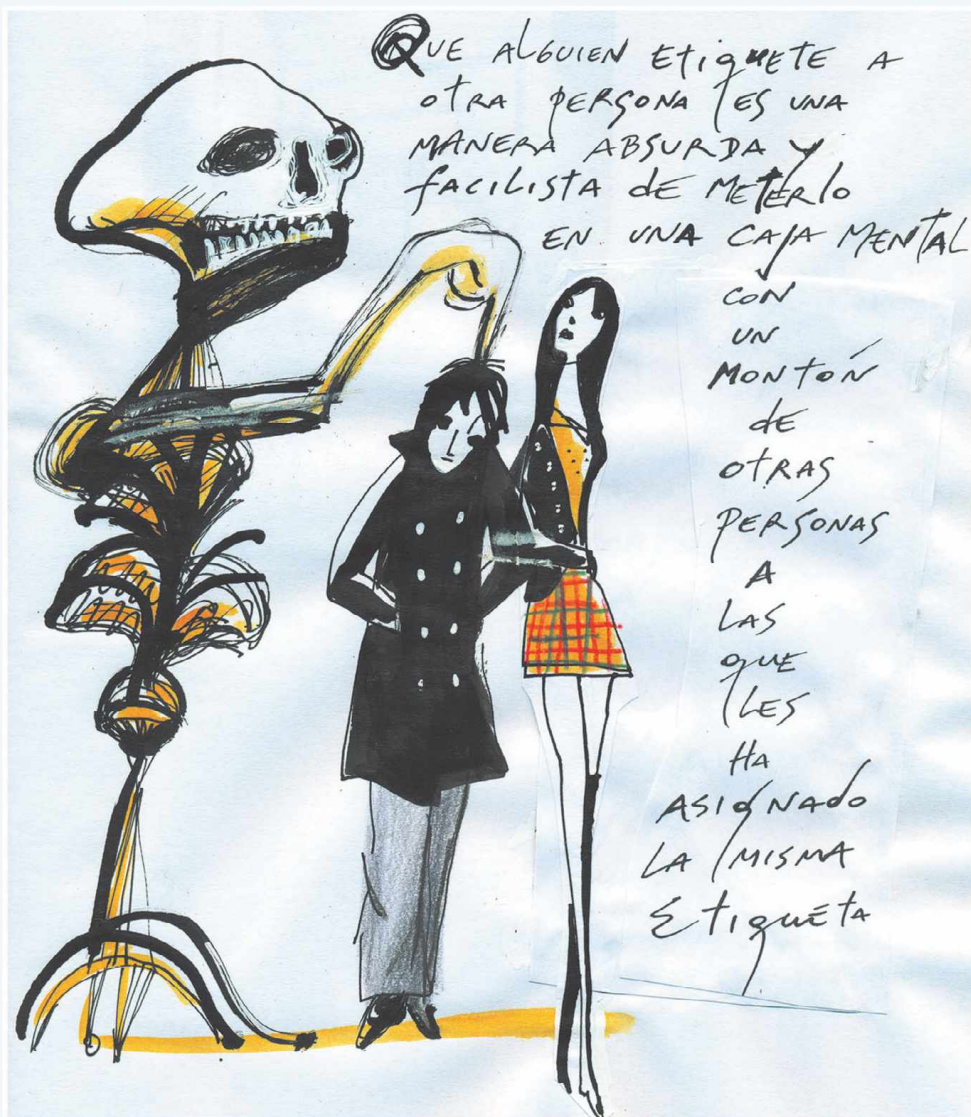 QUE ALGUIEN EtiqUETE A
otRA PERSONA ES UNA
MANERA ABSURDA Y
fACILISTA de METERLO
EN UNA CAJA MENTAL
CON
UN
MONTÓN
de
OTRAS
PERSONAS
A
LAS
qUE
LES
HA
ASIGNAdo
LA MISMA
EtiqUEtA